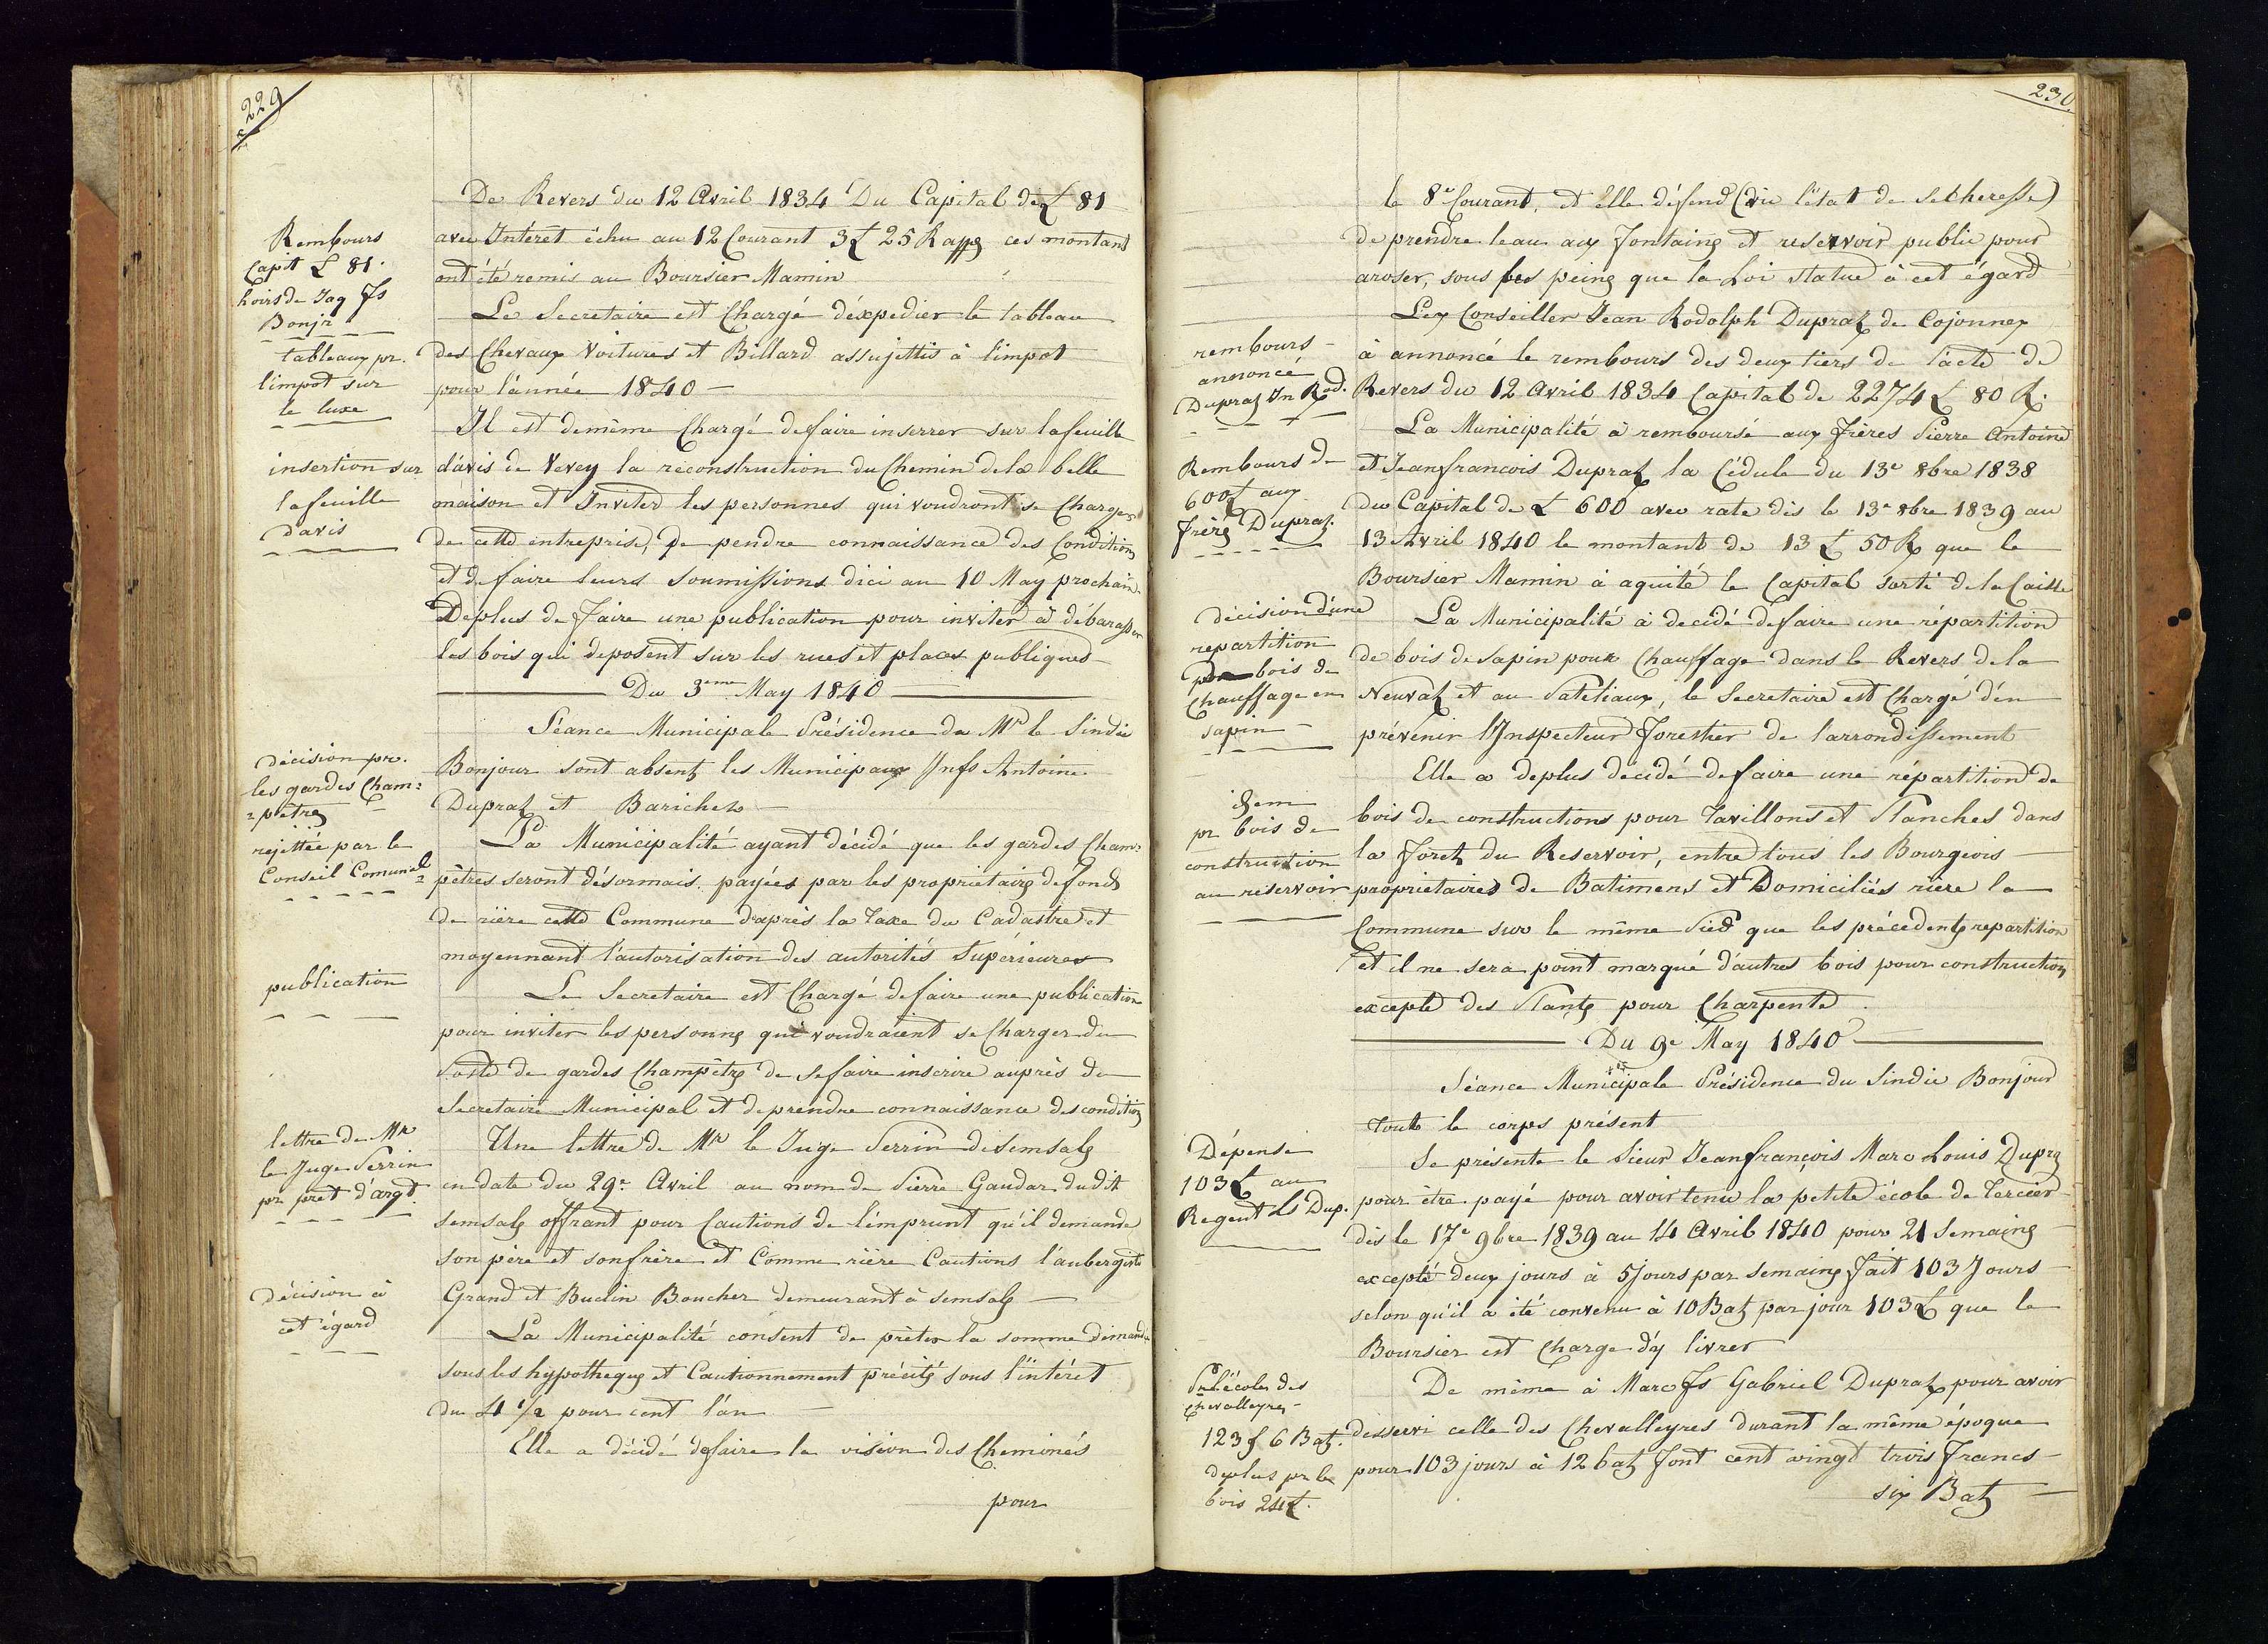 229
Rembours
Capit £ 81.
hoirs de Jaq fs
Bonjr
tableaux pr.
l'impot sur
le luxe
insertion sur
la feuille
d'avis
décision pr.
les gardes Cham=
=pêtres
rejettée par le
Conseil Comunal
publication
lettre de Mr
le Juge Perrin
pr prêt d'argt.
décision à
cet égard
De Revers du 12 Avril 1834 Du Capital de £ 81
avec Intéret échu au 12 Courant 3 £ 25 Rappes ces montant
ont été remis au Boursier Mamin
Le Secretaire est Chargé d'éxpedier le tableau
des Chevaux Voitures et Billard assujettis à l'impot
pour l'année 1840 —
Il est demême Chargé de faire inserrer sur la feuille
d'avis de Vevey la reconstruction du Chemin de la belle
maison et Inviter les personnes qui voudront se Charger
de cette entreprise, de pendre connaissance des Conditions
et de faire leurs soumissions d'ici au 10 May prochain
Deplus de faire une publication pour inviter à débarasser
les bois qui deposent sur les rues et places publiques —
Du 3eme May 1840
Séance Municipale Présidence de Mr le Sindic
Bonjour sont absents les Municipaux Jnfs Antoine
Dupraz et Barichet —
La Municipalité ayant décidé que les gardes Cham=
pêtres seront désormais payées par les proprietaires de fonds
de rière cette Commune d'après la Taxe du Cadastre et
moyennant l'autorisation des autorités Supérieures
Le Secretaire est Chargé de faire une publication
pour inviter les personnes qui voudraient se Charger du
Poste de gardes Champêtres de se faire inscrire auprès du
Secretaire Municipal et de prendre connaissance des conditions
Une lettre de Mr le Juge Perrin de Semsales
en date du 29e Avril au nom de Pierre Gaudar dudit
semsales offrant pour Cautions de l'emprunt qu'il demande
son père et son frère et Comme rière Cautions l'aubergiste
Grand et Buclin Boucher demeurant à semsales —
La Municipalité consent de prêter la somme demandée
sous les hypotheques et Cautionnement précités sous l'intéret
du 4 1/2 pour cent l'an —
Elle a décidé de faire la vision des Cheminés
pour
230
rembours
annoncé
Dupraz Jn Rod.
Rembours de
600 £ aux
frères Dupraz.
décision d'une
repartition
bois de
chauffage en
sapin
idem
pr bois de
construction
au réservoir
Dépense
103 £ au
Regent Ls Dup.
Pr l'école des
Chevalleyres
123 f 6 Batz.
deplus pr le
bois 24 £.
le 8e Courant, et elle défend (vu l'état de secheresse)
de prendre leau aux fontaines et reservoir public pour
aroser, sous les peines que la Loi statue à cet égard
Lex Conseiller Jean Rodolph Dupraz de Cojonnex
à annoncé le rembours des deux tiers de l'acte de
Revers du 12 Avril 1834 Capital de 2274 £ 80 R.
La Municipalité a remboursé aux frères Pierre Antoine
et Jeanfrancois Dupraz la Cédule du 13e 8bre 1838
du Capital de £ 600 avec rate dès le 13e 8bre 1839 au
13 Avril 1840 le montant de 13 £ 50 R que le
Boursier Mamin à aquité le Capital sorti de la Caisse
La Municipalité à decidé de faire une répartition
de bois de sapin pour Chauffage dans le Revers de la
Neuvaz et au Pateliaux, le Secretaire est Chargé d'en
prévenir l'Inspecteur forestier de l'arrondissement
Elle a deplus décidé de faire une répartition de
bois de constructions pour Tavillons et Planches dans
la forêt du Reservoir, entre tous les Bourgeois
proprietaires de Batimens et Domiciliés rière la
Commune sur le même Pied que les précedentes repartition
et il ne sera point marqué d'autres bois pour construction,
excepté des Plantes pour Charpente.
Du 9e May 1840
Séance Municipale Présidence du Sindic Bonjour
toute le corps présent
Se présente le Sieur Jeanfrançois Marc Louis Dupraz
pour être payé pour avoir tenu la petite école de Tercier
dès le 17e 9bre 1839 au 14 Avril 1840 pour 21 Semaines
excepté deux jours à 5 Jours par semaines fait 103 Jours
selon qu'il a été convenu à 10 Batz par jour 103 £ que le
Boursier est Charge d'y livrer
De même à Marc fs Gabriel Dupraz pour avoir
desservi celle des Chevalleyres durant la même époque
pour 103 jours à 12 batz font cent vingt trois francs
six Batz